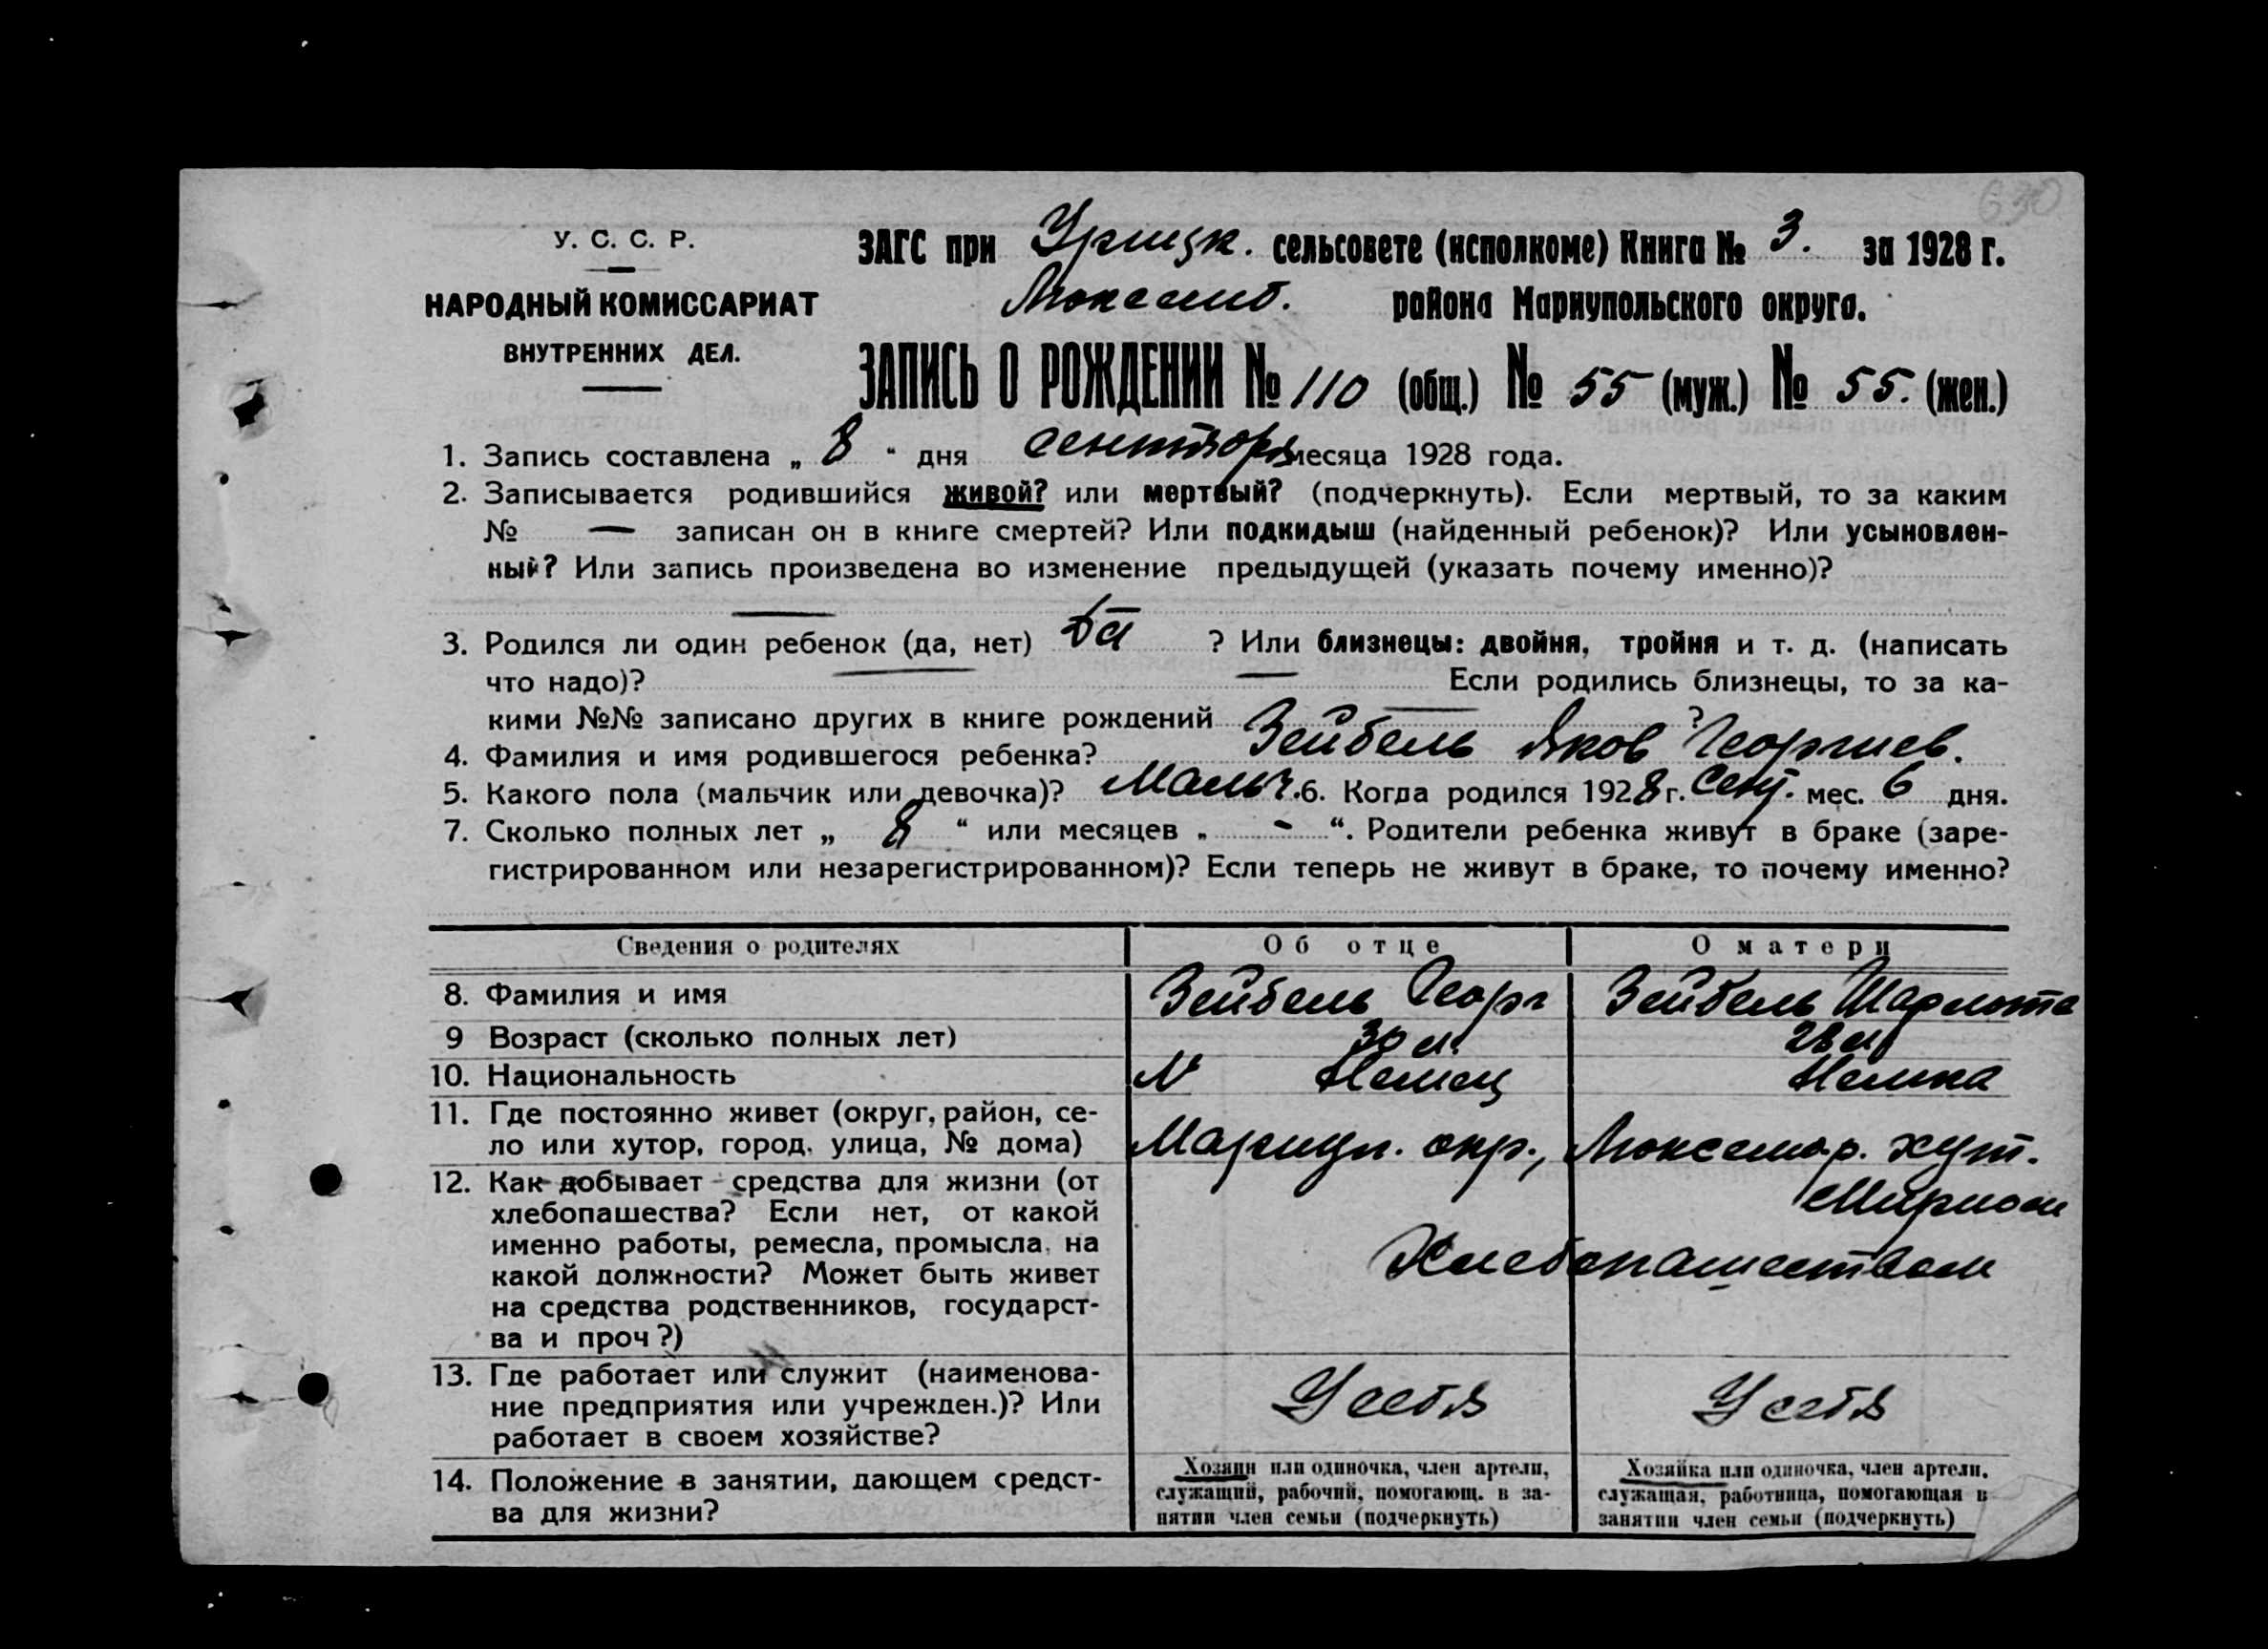 630
У. С. С. Р.
НАРОДНЫЙ КОМИССАРИАТ
ВНУТРЕННИХ ДЕЛ.
ЗАГС при Урицк. сельсовете (исполкоме) Книга № 3. за 1928 г.
Люксемб. района Мариупольского округа.
ЗАПИСЬ О РОЖДЕНИИ № 110 (общ.) № 55 (муж.) № 55. (жен.)
1. Запись составлена „ 8 “ дня сентября месяца 1928 года.
2. Записывается родившийся живой? или мертвый? (подчеркнуть). Если мертвый, то за каким
№ — записан он в книге смертей? Или подкидыш (найденный ребенок)? Или усыновлен-
ный? Или запись произведена во изменение предыдущей (указать почему именно)?
—
3. Родился ли один ребенок (да, нет) да ? Или близнецы: двойня, тройня и т. д. (написать
что надо)? — — Если родились близнецы, то за ка-
кими №№ записано других в книге рождений — ?
4. Фамилия и имя родившегося ребенка? Зейбель Яков Георгиев.
5. Какого пола (мальчик или девочка)? Мальч. 6. Когда родился 1928 г. Сент. мес. 6 дня.
7. Сколько полных лет „ 8 “ или месяцев „ - “. Родители ребенка живут в браке (заре-
гистрированном или незарегистрированном)? Если теперь не живут в браке, то почему именно?
Сведения о родителях Об отце О матери
8. Фамилия и имя Зейбель Георг Зейбель Шарлота
9 Возраст (сколько полных лет) 30 л. 28 л.
10. Национальность Немец Немка
11. Где постоянно живет (округ, район, се-
ло или хутор, город, улица, № дома) Мариуп. окр., Люксем. р. хут.
12. Как добывает средства для жизни (от
хлебопашества? Если нет, от какой
именно работы, ремесла, промысла, на
какой должности? Может быть живет
на средства родственников, государст-
ва и проч?)
Хлебопашеством
13. Где работает или служит (наименова-
ние предприятия или учрежден.)? Или
работает в своем хозяйстве?
У себя У себя
14. Положение в занятии, дающем средст-
ва для жизни?
Хозяин или одиночка, член артели,
служащий, рабочий, помогающ. в за-
нятии член семьи (подчеркнуть)
Хозяйка или одиночка, член артели,
служащая, работница, помогающая в
занятии член семьи (подчеркнуть)